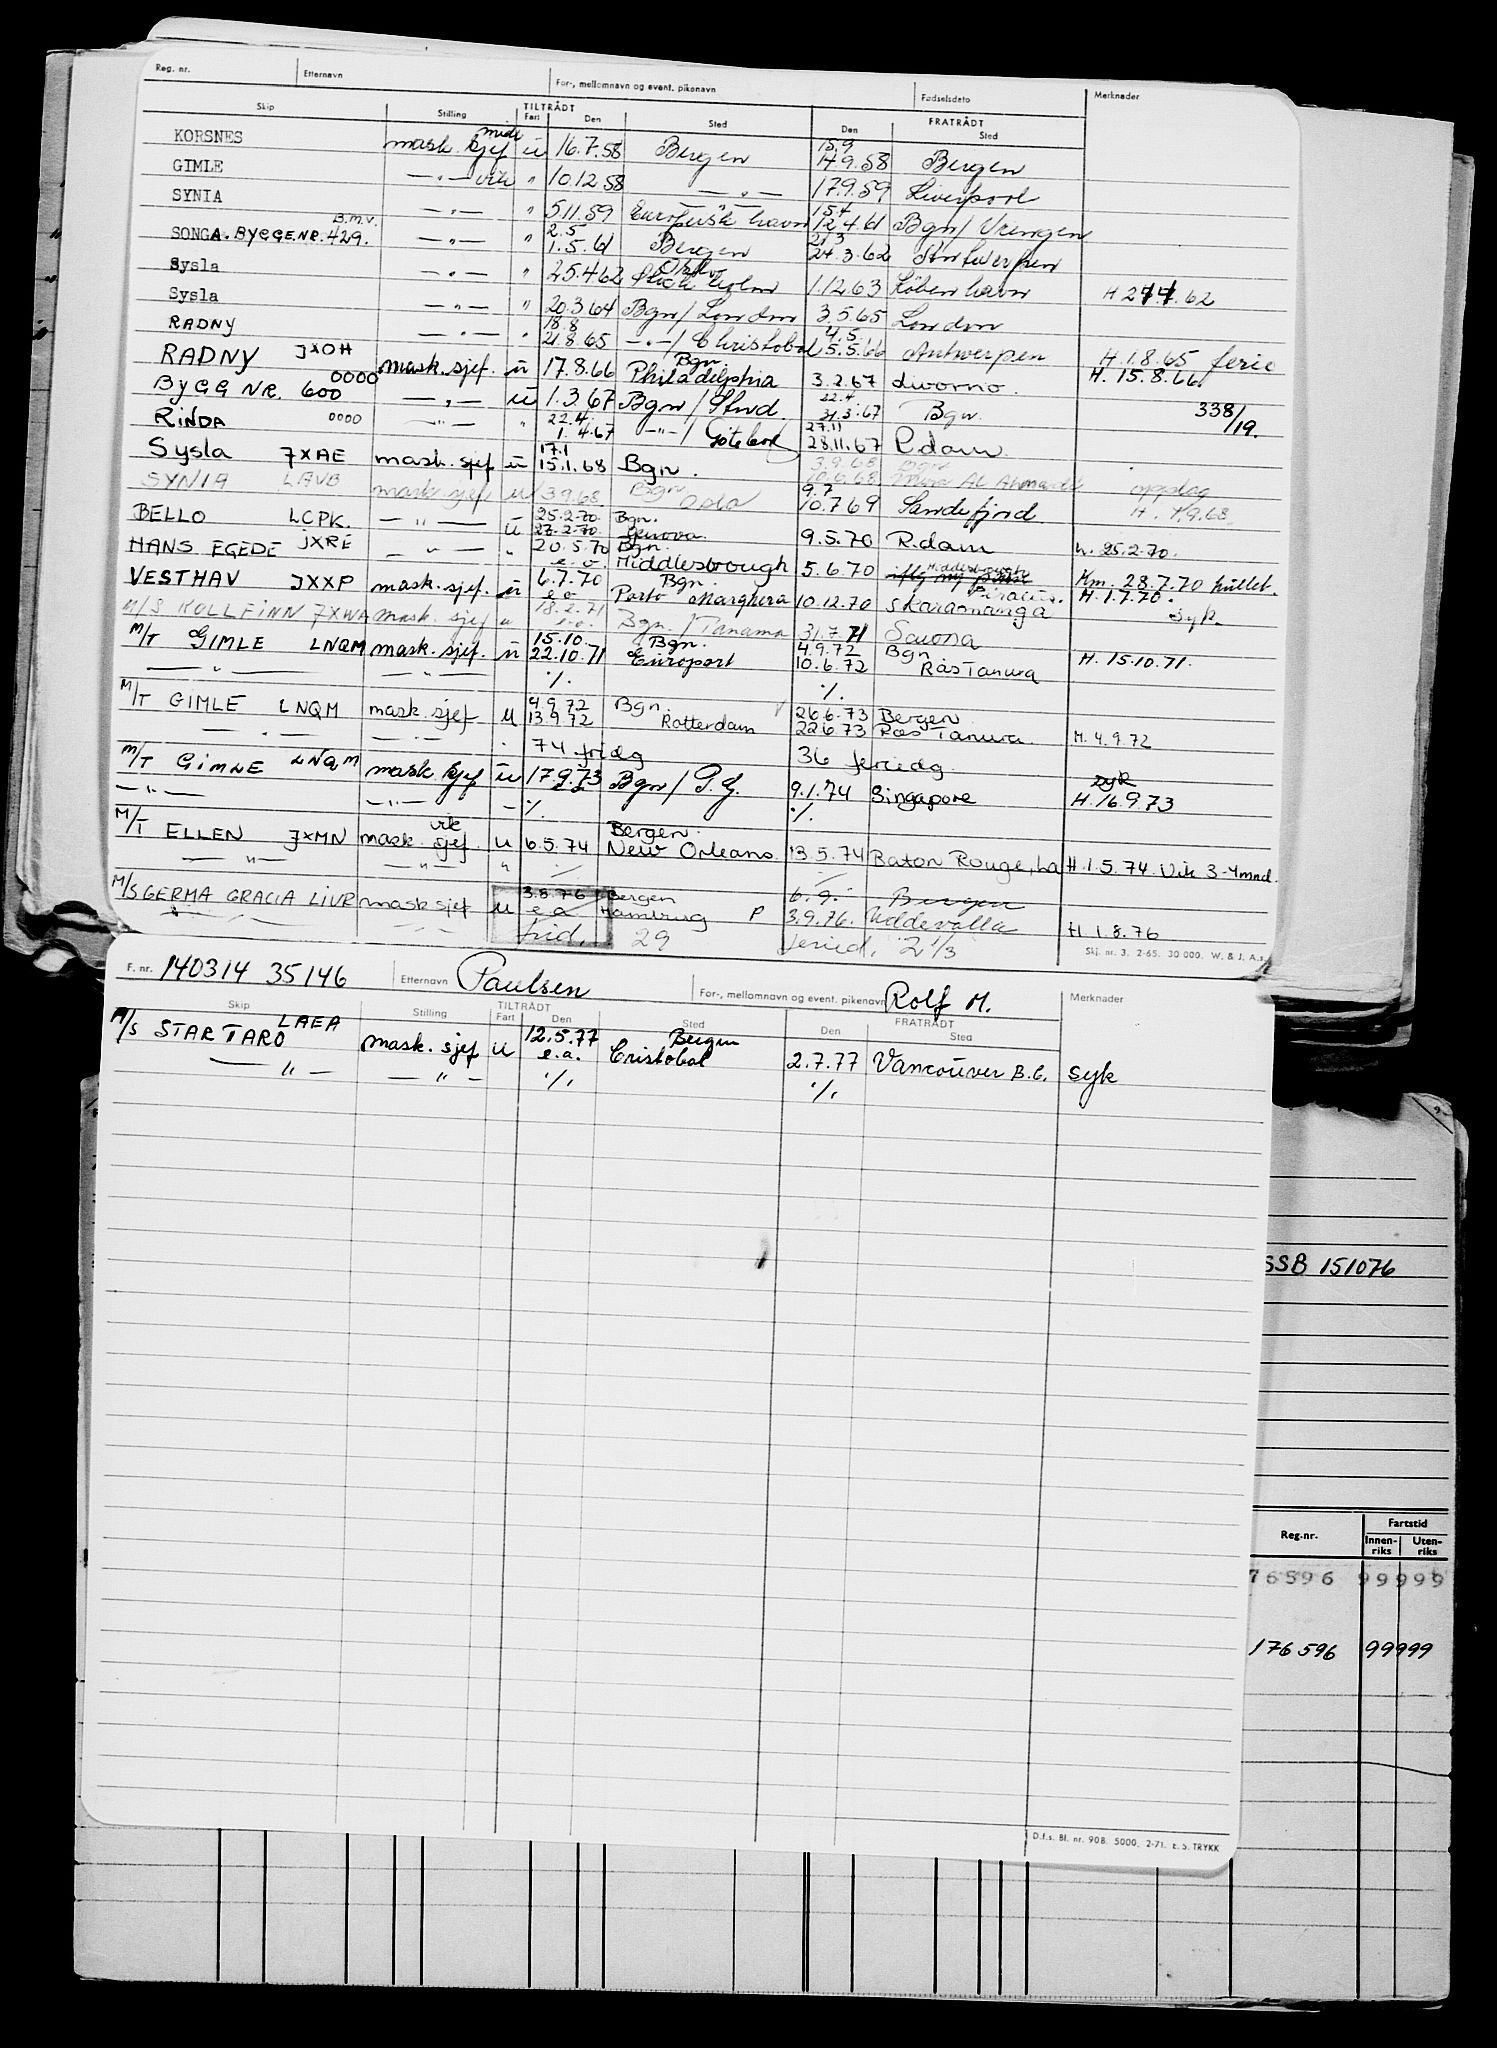 Reg. nr. Etternavn For-, mellomnavn og event. pikenavn Fødselsdato Merknader
Skip Stilling TILTRÅDT Fart Den Sted Den FRATRÅDT Sted
KORSNES mask. sjef midl ü 16.7.58 Bergen 15.9 14.9.58 Bergen
GIMLE —"— vik " 10.12.58 —"— 17.9.59 Liverpool
SYNIA —"— " 5.11.59 Europeisk havn 15.4 12.4.61 Bgn/Vrengen
SONGA. BYGGENR. 429. B.M.V. —"— " 2.5 1.5.61 Bergen 21.3 24.3.62 Antwerpen
Sysla —"— " 25.4.62 Oslo Stockholm 1.12.63 København H 27.7.62
Sysla —"— " 20.3.64 Bgn/London 3.5.65 London
RADNY —"— " 18.8 21.8.65 —"—/Christobal 4.5 5.5.66 Antwerpen H.1.8.65 ferie
RADNY JXOH mask. sjef. ü 17.8.66 Bgn. Philadelphia 3.2.67 Livorno. H. 15.8.66.
BYGG NR. 600 0000 —"— ü 1.3.67 Bgn/Stord. 22.4 31.3.67 Bgn. 338/19.
RINDA 0000 —"— " 22.4. 1.4.67 —"—/Göteborg 27.11 28.11.67 R.dam.
Sysla JXAE mask. sjef ü 17.1 15.1.68 Bgn. 3.9.68 Bgn 10.6.68 Mena Al Ahmadi oppdag
SYNIA LAVB mask. sjef u 3.9.68 Bgn Oslo 9.7 10.7.69 Sandefjord H. 1.9.68
BELLO LCPK. —"— ü 25.2.70. 27.2.70. Bgn. Genova. 9.5.70 R.dam h. 25.2.70.
HANS EGEDE JXRE —"— " 20.5.70 e.o. Bgn. Middlesbrough 5.6.70 Middlesbrough Km. 28.7.70 kullet.
VESTHAV JXXP mask. sjef. ü 6.7.70 e.o Bgn. Porto Marghera 10.12.70 Piraeus. Skaramanga H.1.7.70. Syk
M/S KOLLFINN JXWA mask. sjef u 18.2.71 e.o. Bgn./Panama 31.7.71 Savona
M/T GIMLE LNQM mask. sjef. ü 15.10. 22.10.71 Bgn. Europort 4.9.72 10.6.72 Bgn Ras Tanura H. 15.10.71.
—"— —"— ·/. ·/.
M/T GIMLE LNQM mask. sjef u 4.9.72 13.9.72 Bgn. Rotterdam 26.6.73 22.6.73 Bergen Ras Tanura. H. 4.9.72
—"— —"— " 74 fridg 36 feriedg.
M/T GIMLE LNQM mask. sjef ü 17.9.73 Bgn/P.G. 9.1.74 Singapore syk H.16.9.73
—"— —"— — ·/. ·/.
M/T ELLEN JXMN mask. sjef. vik u 6.5.74 Bergen. New Orleans. 13.5.74 Baton Rouge, La H.1.5.74 Vik 3-4mnd.
—"— —"— "
M/S GERMA GRACIA LIVR mask sjef u 3.8.76 e.o Bergen Hamburg P 6.9. 3.9.76. Bergen Uddevalla H 1.8.76
frid. 29 feried. 2 1/3
Skj. nr. 3. 2-65. 30 000. W. & J. A.s.
F. nr. 140314 35146 Etternavn Paulsen For-, mellomnavn og event. pikenavn Rolf M. Merknader
Skip Stilling TILTRÅDT Fart Den Sted Den FRATRÅDT Sted
M/S STAR TARO LAEA mask. sjef u 12.5.77 e.o. Bergen Cristobal 2.7.77 Vancouver B.C. syk
—"— —"— ·/. ·/.
SSB 151076
Reg.nr. Fartstid
Innen-riks Uten-riks
76596 99999
176 596 99999
D.f.s. Bl. nr. 908. 5000. 2-71. E. S. TRYKK